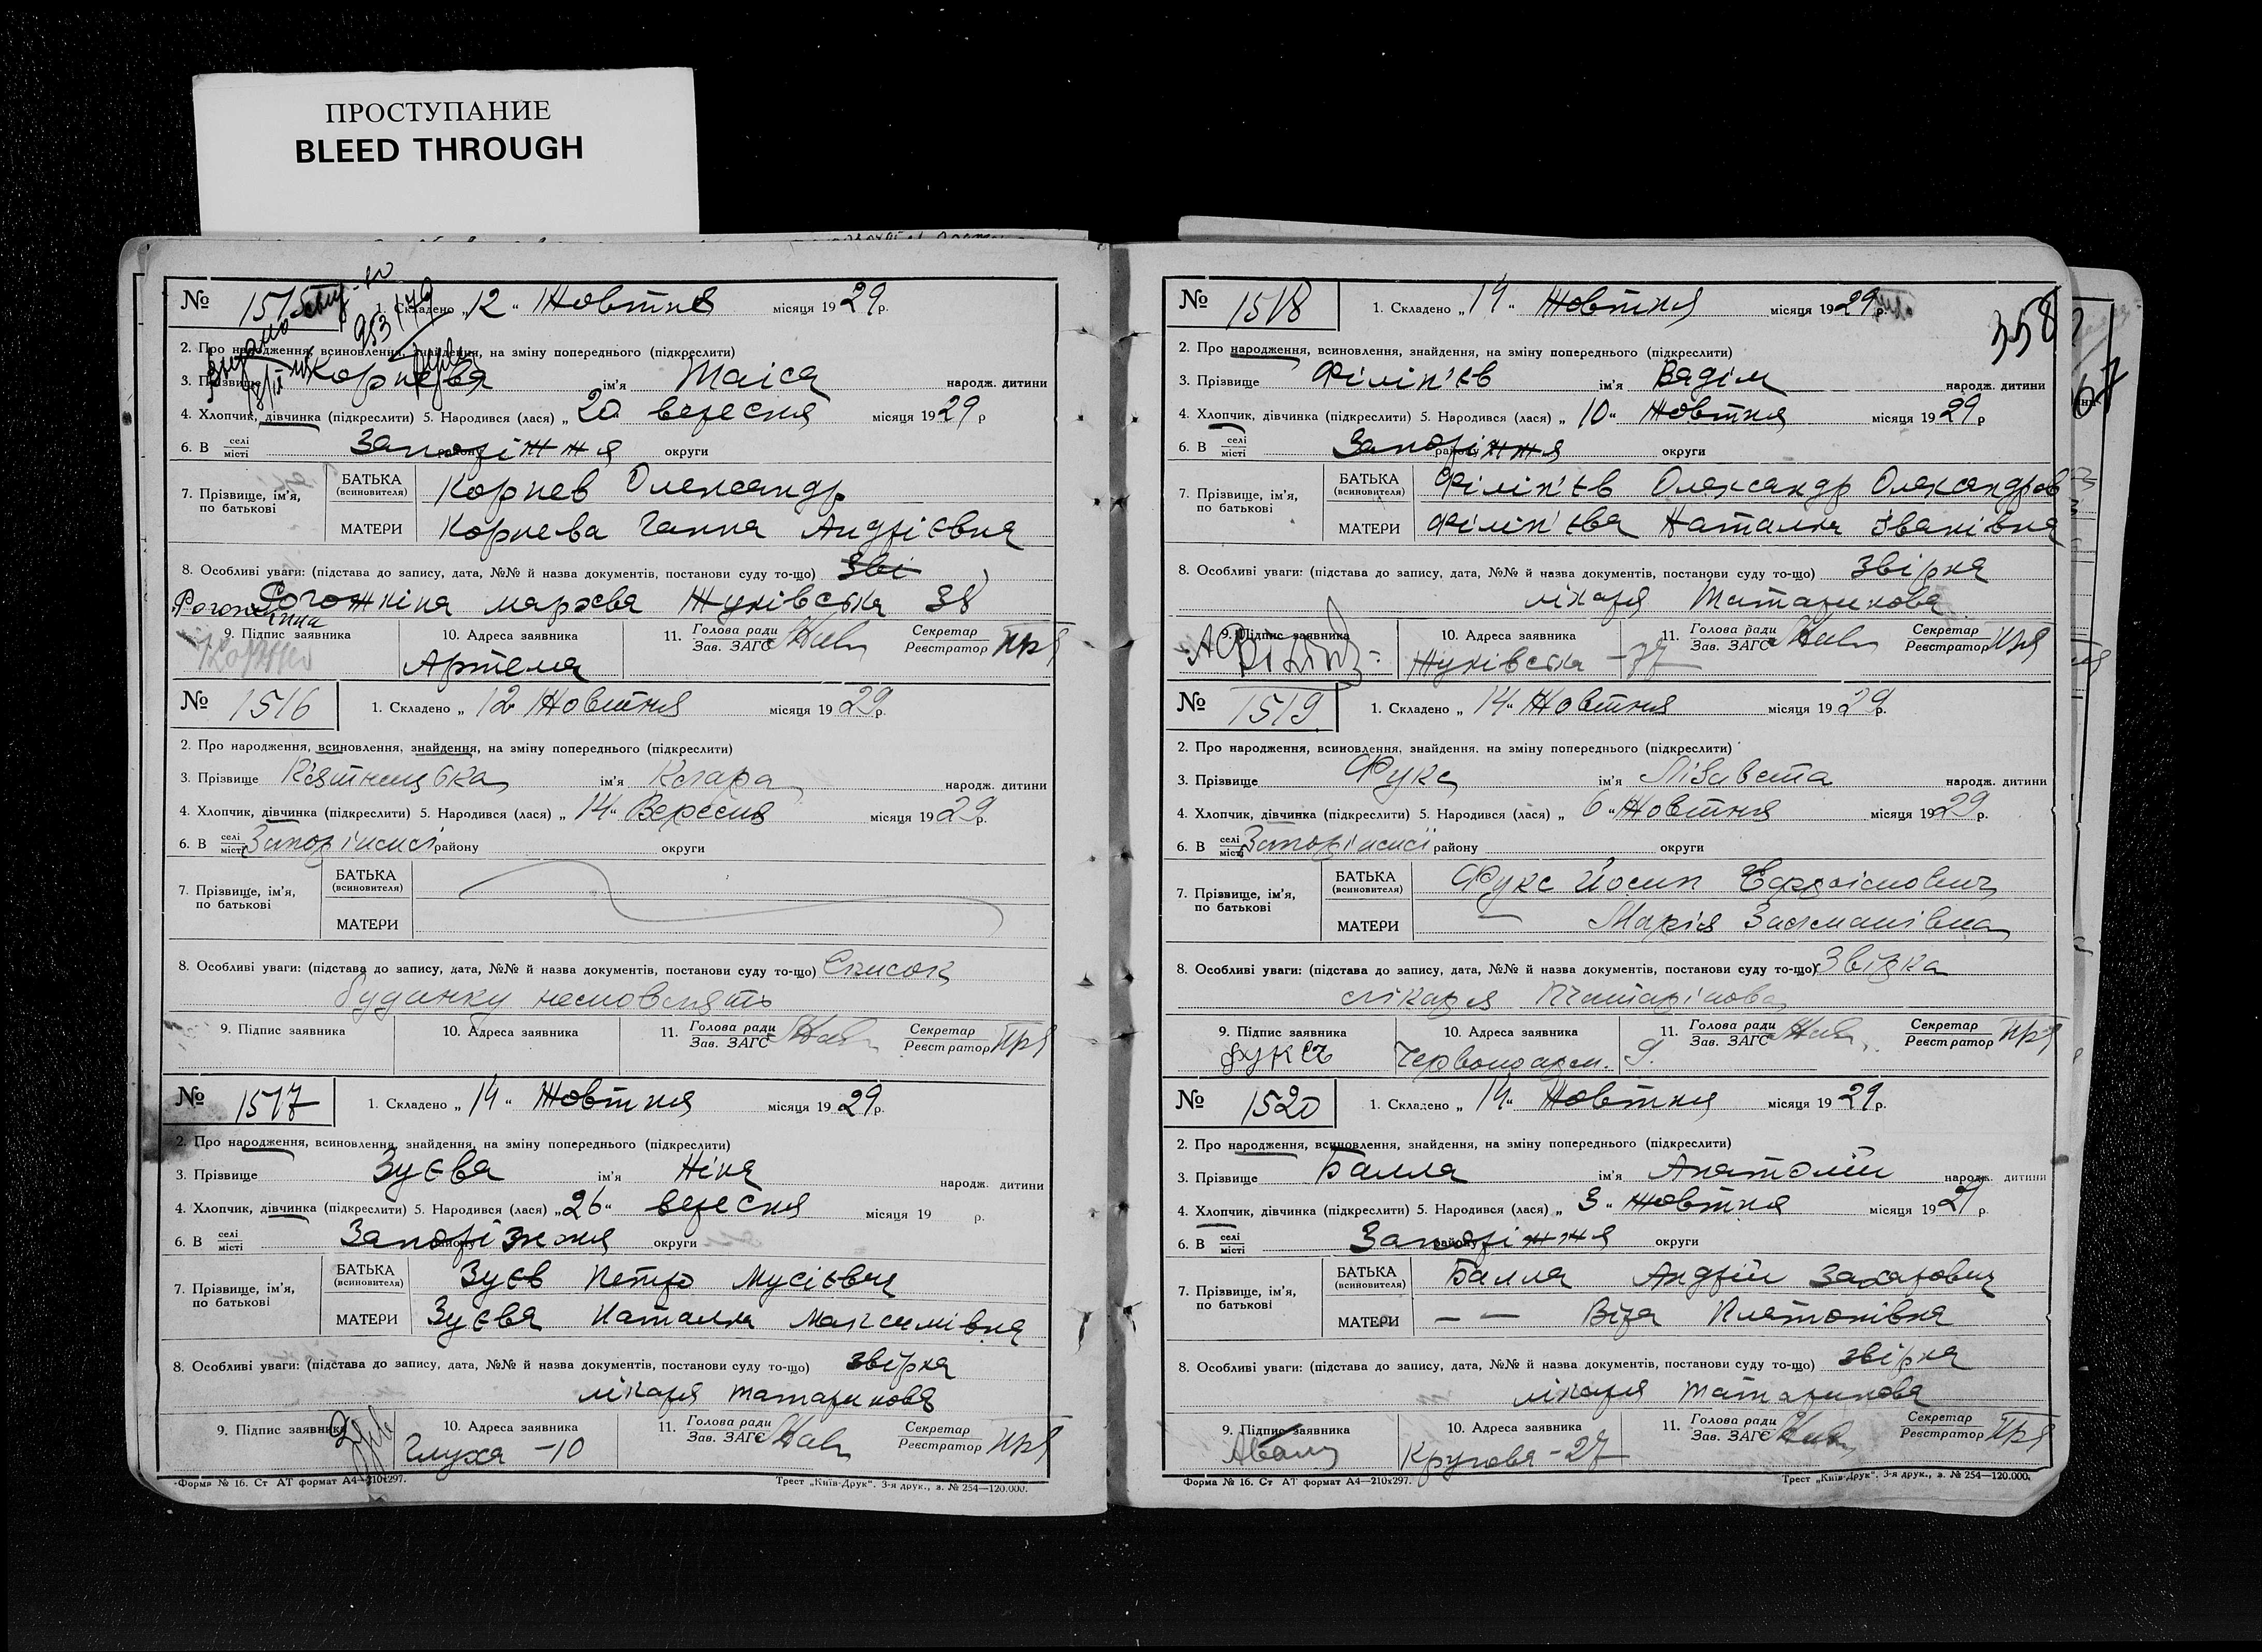 ПРОСТУПАНИЕ
BLEED THROUGH
№ 1515 1. Складено „12“ Жовтня місяця 1929 р.
2. Про народження, всиновлення, знайдення, на зміну попереднього (підкреслити)
3. Прізвище Корнева ім'я Таіса народж. дитини
4. Хлопчик, дівчинка (підкреслити) 5. Народився (лася) „20 вересня місяця 1929 р
6. В селі місті Запоріжжя району округи
7. Прізвище, ім'я, по батькові
БАТЬКА (всиновителя) Корнев Олександр
МАТЕРИ Корнева Ганна Андрієвна
8. Особливі уваги: (підстава до запису, дата, №№ й назва документів, постанови суду то-що) Зві
Рогожкіна Жуківська 38
9. Підпис заявника 10. Адреса заявника 11. Голова ради Зав. ЗАГС Секретар Реєстратор
Артема
№ 1516 1. Складено „12 Жовтня місяця 1929 р.
2. Про народження, всиновлення, знайдення, на зміну попереднього (підкреслити)
3. Прізвище Пятницька ім'я Клара народж. дитини
4. Хлопчик, дівчинка (підкреслити) 5. Народився (лася) „14“ Вересня місяця 1929 р.
6. В селі місті району округи
7. Прізвище, ім'я, по батькові
БАТЬКА (всиновителя)
МАТЕРИ
8. Особливі уваги: (підстава до запису, дата, №№ й назва документів, постанови суду то-що) Список
будинку немовлять
9. Підпис заявника 10. Адреса заявника 11. Голова ради Зав. ЗАГС Секретар Реєстратор
№ 1517 1. Складено „14“ Жовтня місяця 1929 р.
2. Про народження, всиновлення, знайдення, на зміну попереднього (підкреслити)
3. Прізвище Зуєва ім'я Ніна народж. дитини
4. Хлопчик, дівчинка (підкреслити) 5. Народився (лася) „26“ вересня місяця 19 р.
6. В селі місті Запоріжжя району округи
7. Прізвище, ім'я, по батькові
БАТЬКА (всиновителя) Зуєв Петро Мусієвич
МАТЕРИ Зуєва Наталія Максимівна
8. Особливі уваги: (підстава до запису, дата, №№ й назва документів, постанови суду то-що) звірка
лікаря Татаринова
9. Підпис заявника 10. Адреса заявника 11. Голова ради Зав. ЗАГС Секретар Реєстратор
Глуха -10
Форма № 16. Ст АТ формат А4—210x297. Трест „Київ-Друк“. 3-я друк., з. № 254—120.000.
358
№ 1518 1. Складено „14“ Жовтня місяця 1929 р.
2. Про народження, всиновлення, знайдення, на зміну попереднього (підкреслити)
3. Прізвище Філіп'єв ім'я Вадім народж. дитини
4. Хлопчик, дівчинка (підкреслити) 5. Народився (лася) „10“ Жовтня місяця 1929 р
6. В селі місті Запоріжжя району округи
7. Прізвище, ім'я, по батькові
БАТЬКА (всиновителя) Філіп'єв Олександр Олександров
МАТЕРИ Філіп'єва Наталія Іванівна
8. Особливі уваги: (підстава до запису, дата, №№ й назва документів, постанови суду то-що) Звірка
лікаря Татаринова
9. Підпис заявника 10. Адреса заявника 11. Голова ради Зав. ЗАГС Секретар Реєстратор
Жуківська -77
№ 1519 1. Складено „14“ Жовтня місяця 1929 р.
2. Про народження, всиновлення, знайдення, на зміну попереднього (підкреслити)
3. Прізвище Фукс ім'я Лізавета народж. дитини
4. Хлопчик, дівчинка (підкреслити) 5. Народився (лася) „6“ Жовтня місяця 1929 р.
6. В селі місті району округи
7. Прізвище, ім'я, по батькові
БАТЬКА (всиновителя) Фукс Йосип Ефроімович
МАТЕРИ — Марія
8. Особливі уваги: (підстава до запису, дата, №№ й назва документів, постанови суду то-що) Звірка
лікаря Татарінова
9. Підпис заявника 10. Адреса заявника 11. Голова ради Зав. ЗАГС Секретар Реєстратор
Фуксъ Червоноарм. 9.
№ 1520 1. Складено „14“ Жовтня місяця 1929 р.
2. Про народження, всиновлення, знайдення, на зміну попереднього (підкреслити)
3. Прізвище Балла ім'я Анатолій народж. дитини
4. Хлопчик, дівчинка (підкреслити) 5. Народився (лася) „3“ Жовтня місяця 1929 р.
6. В селі місті Запоріжжя району округи
7. Прізвище, ім'я, по батькові
БАТЬКА (всиновителя) Балла Андрій Захарович
МАТЕРИ — — Віра Платонівна
8. Особливі уваги: (підстава до запису, дата, №№ й назва документів, постанови суду то-що) звірка
лікаря Татаринова
9. Підпис заявника 10. Адреса заявника 11. Голова ради Зав. ЗАГС Секретар Реєстратор
Кругова -27
Форма № 16. Ст АТ формат А4—210x297. Трест „Київ-Друк“. 3-я друк., з. № 254—120.000.